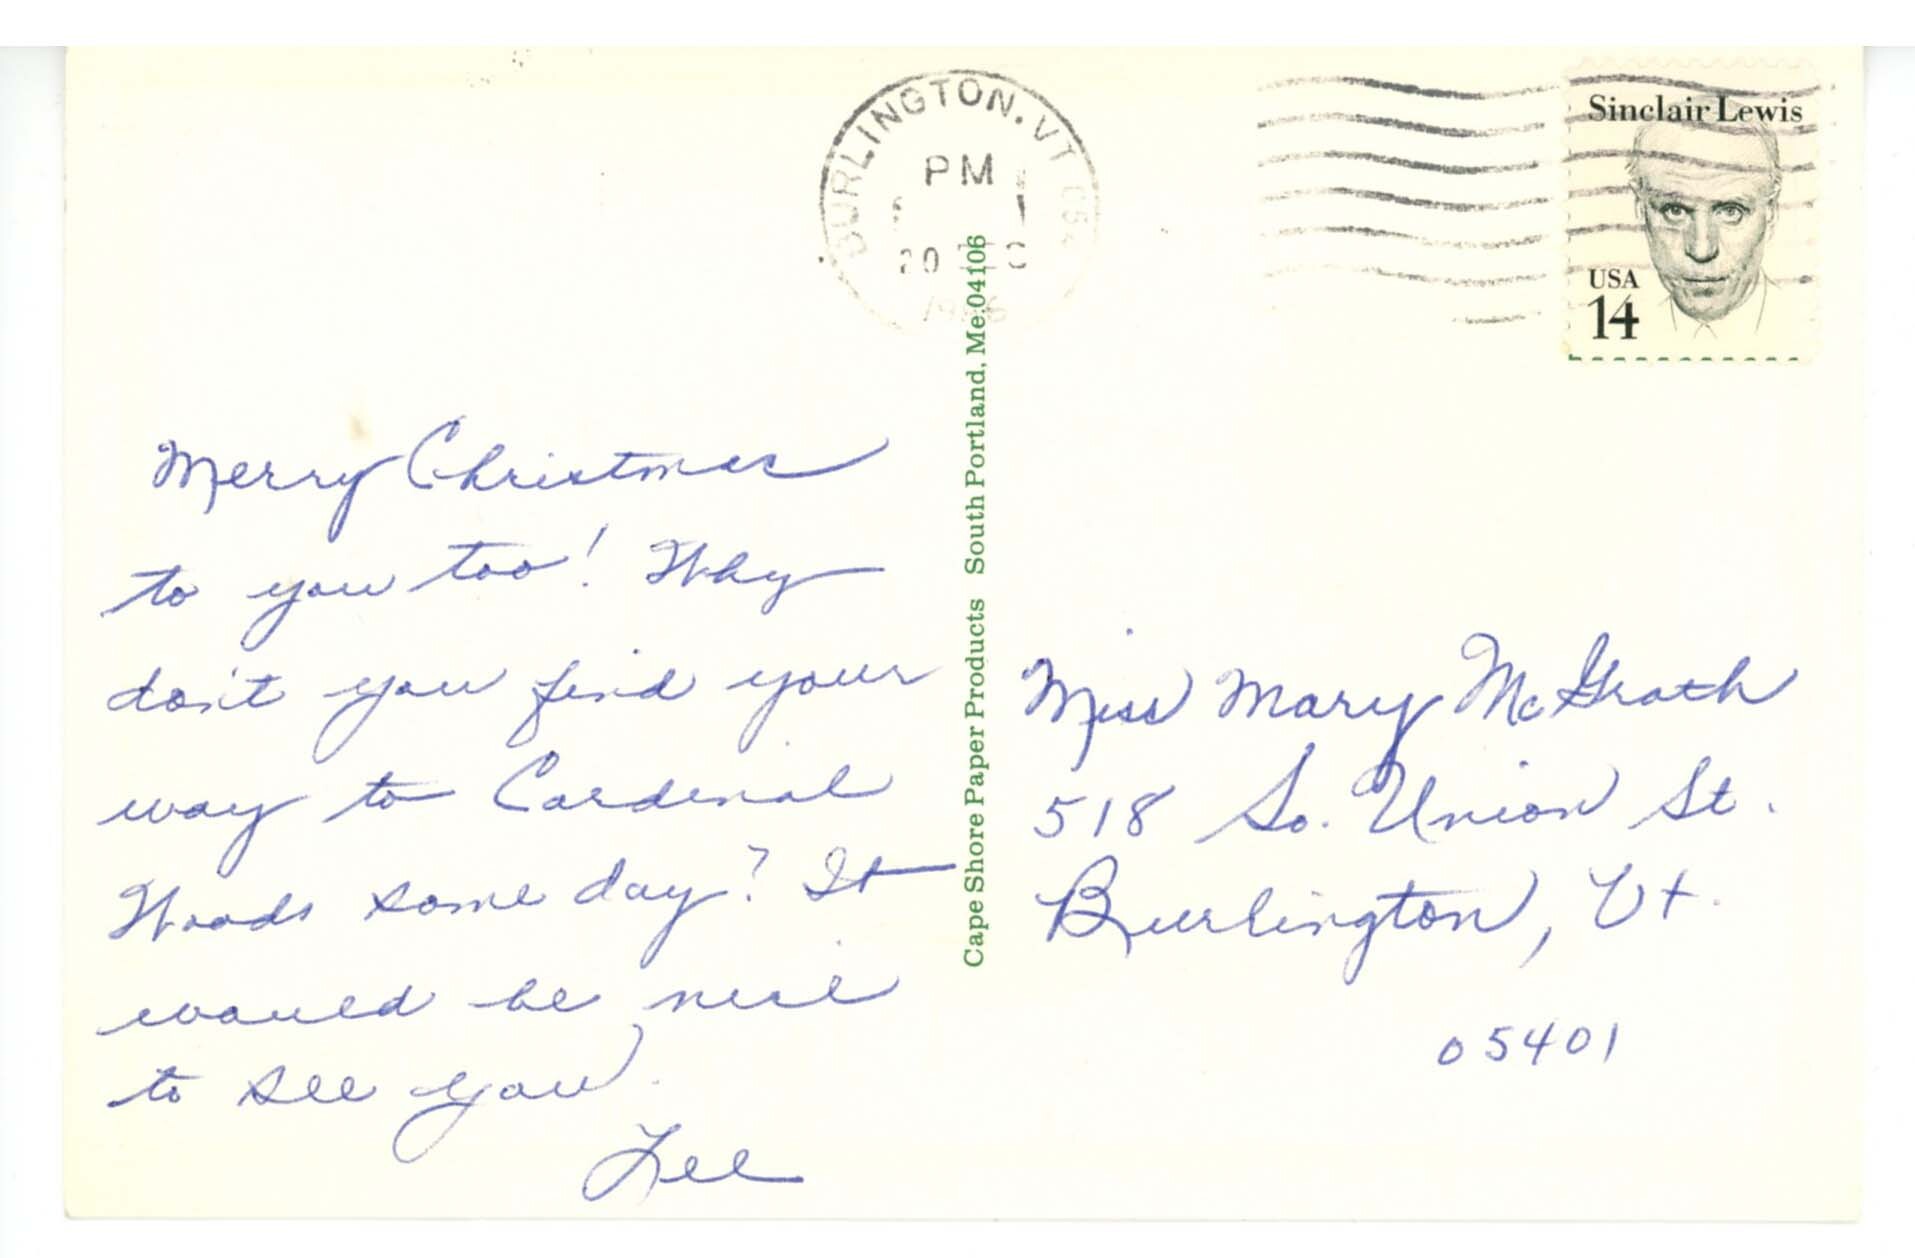 BURLINGTON, VT 054
PM
20
Sinclair Lewis
USA
14
Merry Christmas
to you too! Why
don't you find your
way to Cardinal
Woods some day? It
would be nice
to see you.
Lee
Cape Shore Paper Products South Portland, Me. 04106
Miss Mary McGrath
518 So. Union St.
Burlington, Vt.
05401